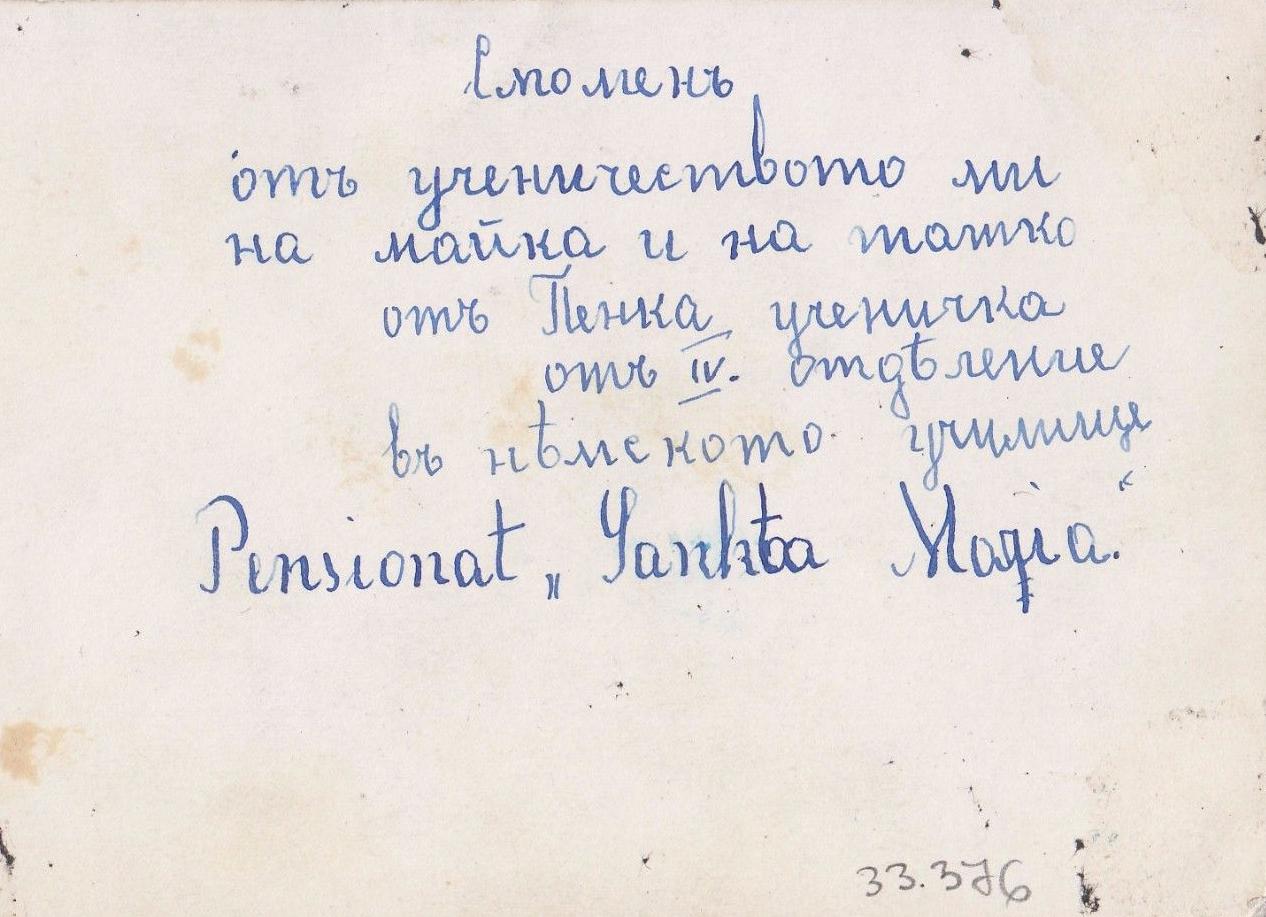 Споменъ
отъ ученичеството ми
на майка и на татко
отъ Пенка ученичка
отъ IV. отдѣление
въ нѣмското училище
Pensionat „Sankta Maria.“
33.376